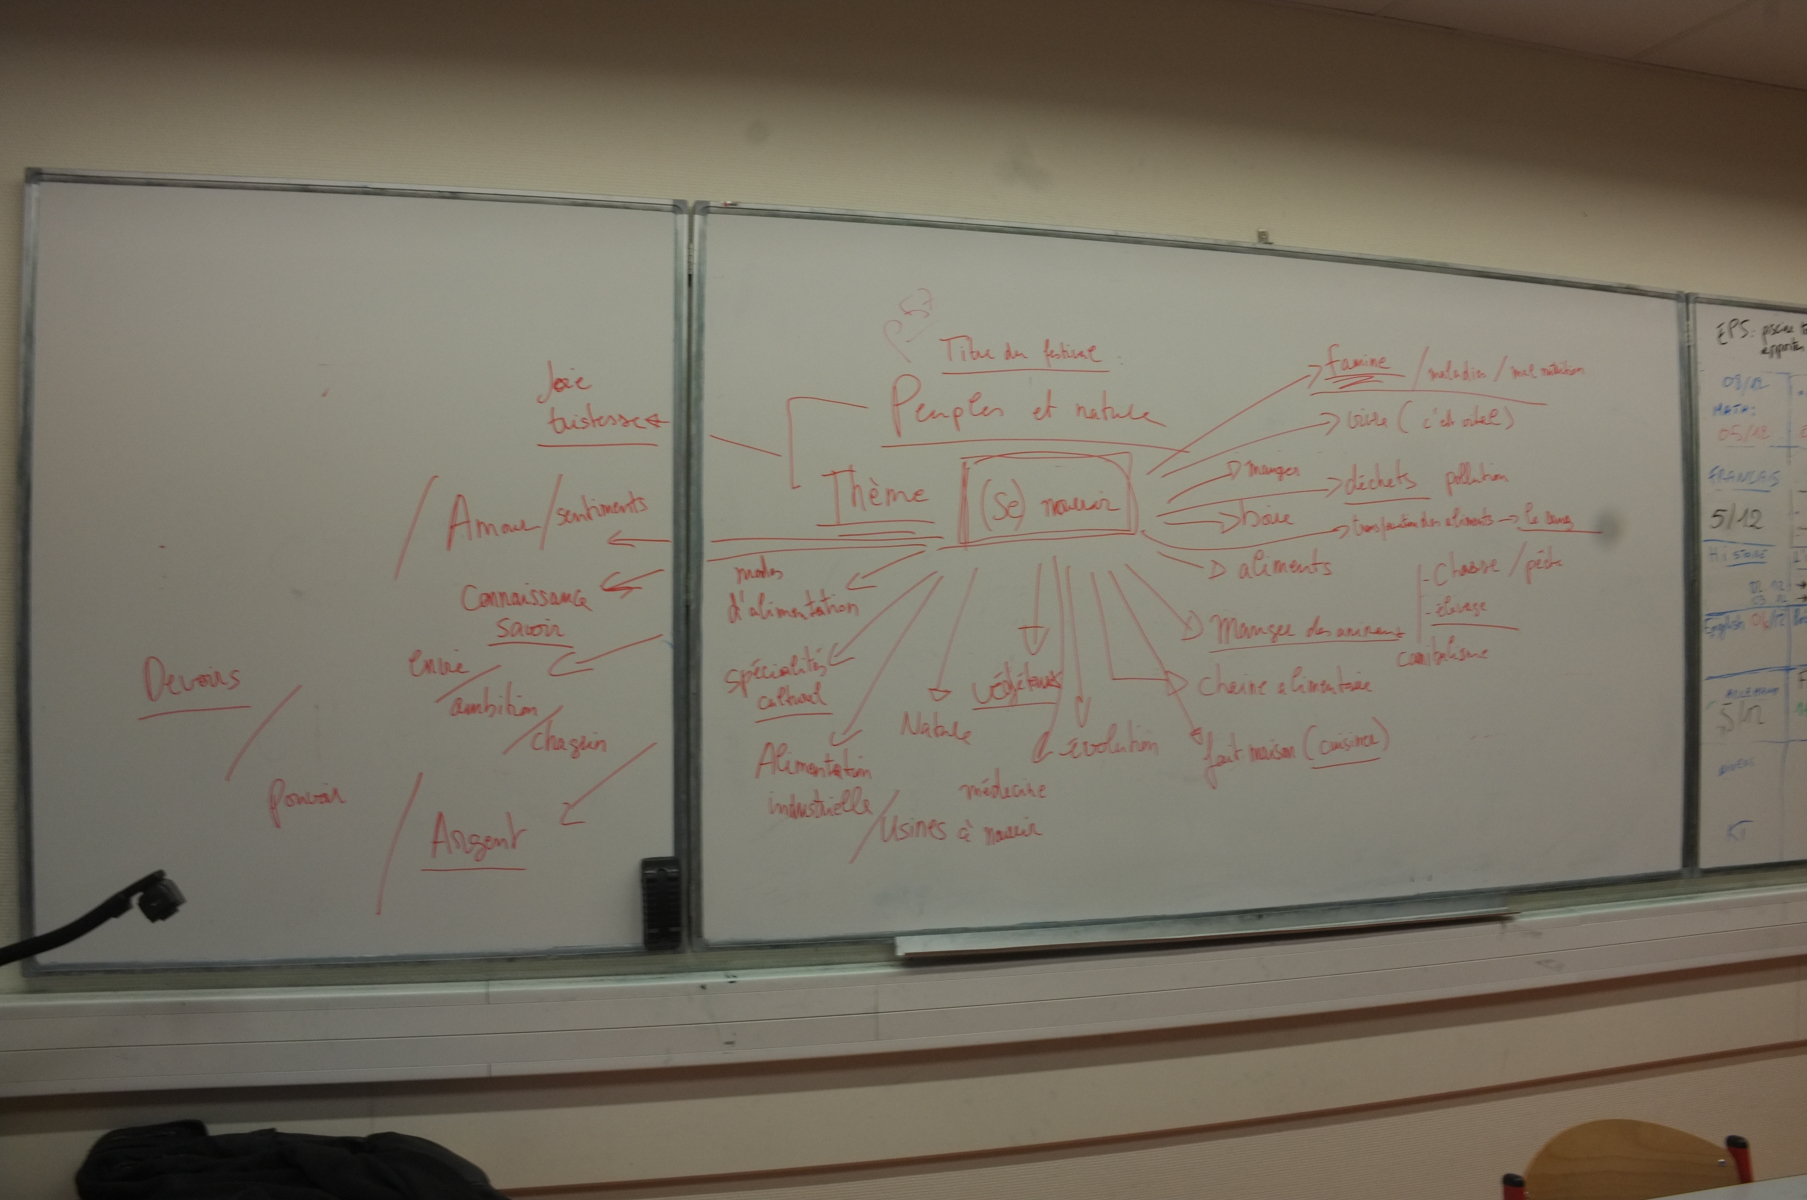 Joie
tristesse
Amour / sentiments
Connaissance
Savoir
envie
ambition
chagrin
Devoirs
pouvoir
Argent
P 57
Titre du festival :
Peuples et nature
Thème
(Se) nourrir
modes
d'alimentation
spécialités
culturel
Alimentation
industrielle
/ Usines à nourrir
Nature
végétaux
évolution
médecine
famine / maladies / mal nutrition
vivre ( c'est vital )
manger
déchets pollution
boire
le sang
aliments
- Chasse / pêche
- élevage
Manger des animaux
cannibalisme
chaine alimentaire
fait maison (cuisiner)
EPS: piscine
apporter
08/12
MATH:
05/12
FRANCAIS
5/12
Histoire
English 04/12
ALLEMAND
5/12
DIVERS